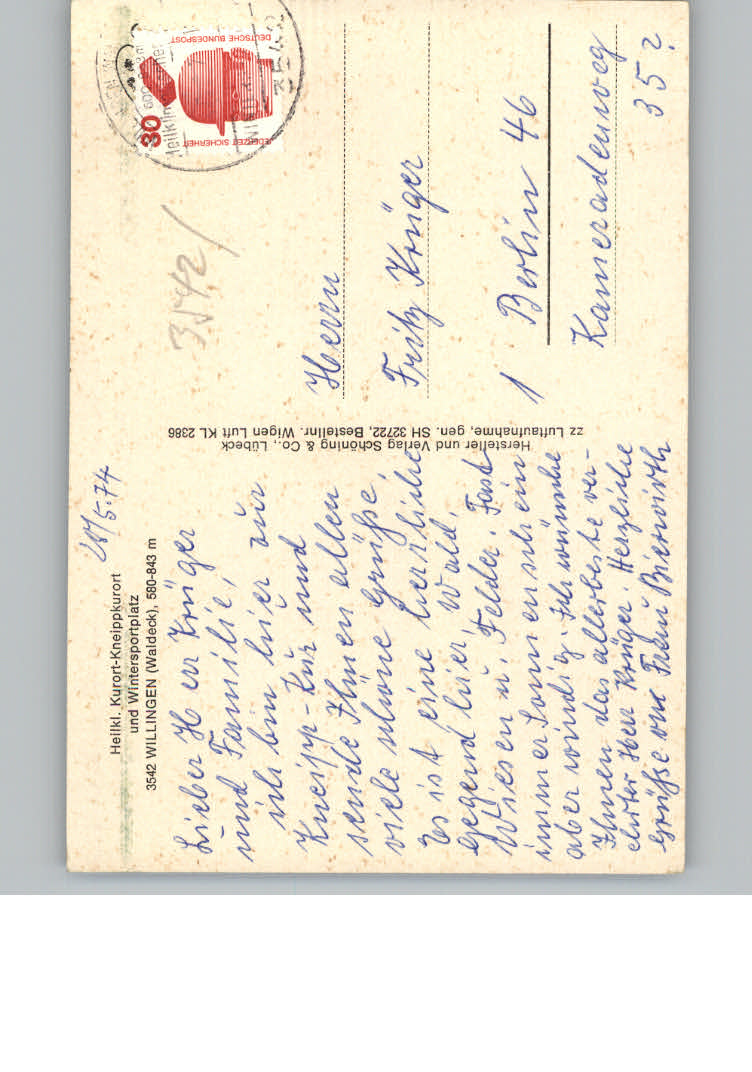 Heilkl. Kurort-Kneippkurort
und Wintersportplatz
3542 WILLINGEN (Waldeck), 580-843 m
28/5.74
Lieber Herr Krüger
und Familie,
ich bin hier zur
Kneipp-Kur und
sende Ihnen allen
viele schöne Grüße,
Es ist eine herrliche
Gegend hier, Wald,
Wiesen u. Felder. Fast
immer Sonnenschein
aber windig. Ich wünsche
Ihnen das allerbeste ver-
ehrter Herr Krüger. Herzliche
Grüße von Frau Bierwirth
Hersteller und Verlag Schöning & Co., Lübeck
zz Luftaufnahme, gen. SH 32722, Bestellnr. Wigen Luft KL 2386
DEUTSCHE BUNDESPOST
JEDERZEIT SICHERHEIT
30
3542/
Herrn
Fritz Krüger
1 Berlin 46
Kameradenweg
35?